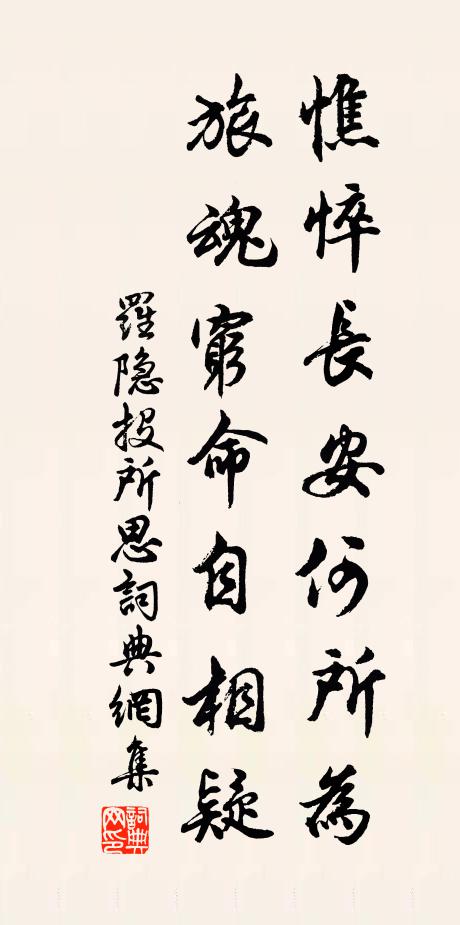 憔悴長安何所為
旅魂窮命自相疑
羅隐投所思詞典網集
詞典网印